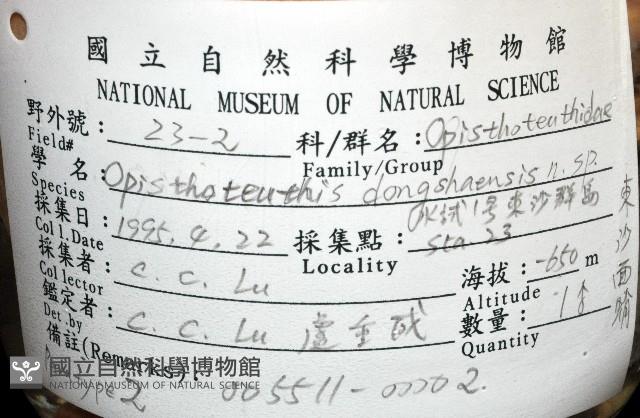 國立自然科學博物館
NATIONAL MUSEUM OF NATURAL SCIENCE
野外號：23-2 科/群名：Opisthoteuthidae
Field# Family/Group
學 名：Opisthoteuthis dongshaensis n. sp.
Species
採集日：1995. 4. 22 採集點：水試1号東沙群島 Sta 23
Coll.Date Locality
採集者：C. C. Lu 海拔：-650 m
Collector Altitude
鑑定者：C. C. Lu 盧重成 數量：1
Det.by Quantity
備註(Remarks)：
005511-00002.
東沙
國立自然科學博物館
NATIONAL MUSEUM OF NATURAL SCIENCE